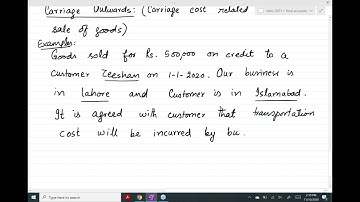 Carriage Outwards: (Carriage cost related
sale of goods)
Examples:
Goods sold for Rs. 500,000 on credit to a
customer Zeeshan on 1-1-2020. Our business
is in Lahore and customer is in Islamabad.
It is agreed with customer that transportation
cost will be incurred by bu.
Type here to search